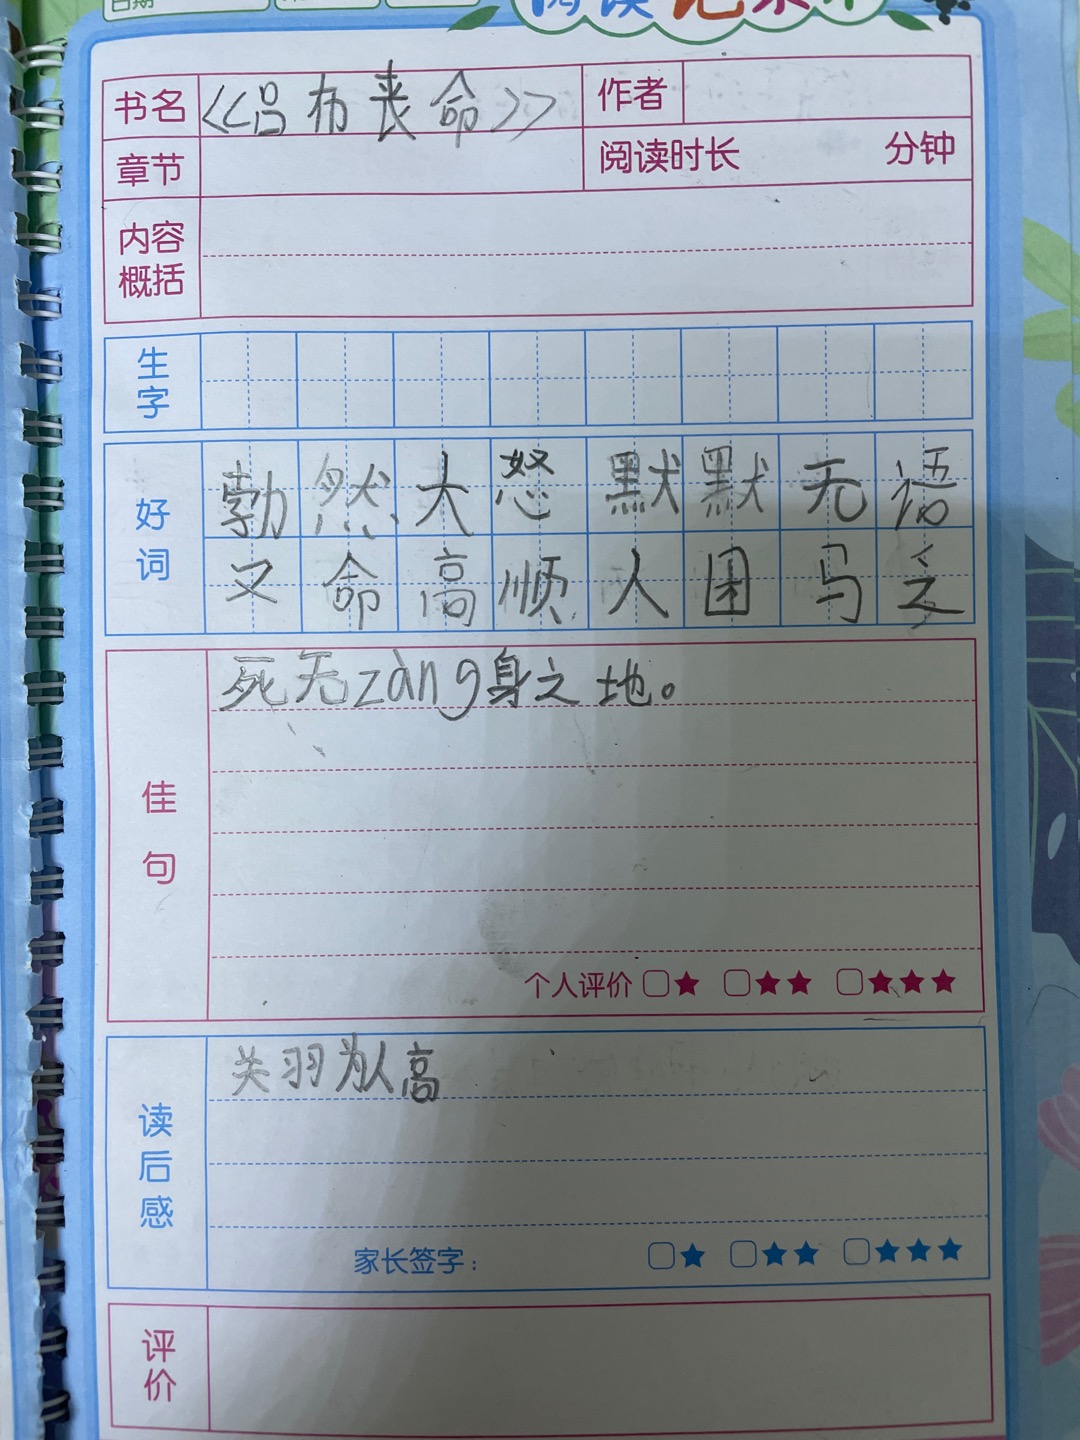 日期
阅读记录卡
书名 《吕布丧命》 作者
章节 阅读时长 分钟
内容概括
生字
好词 勃然大怒默默无语
又命高顺人困马乏
佳句 死无zàng身之地。
个人评价 ★ ★★ ★★★
读后感 关羽为人高
家长签字： ★ ★★ ★★★
评价